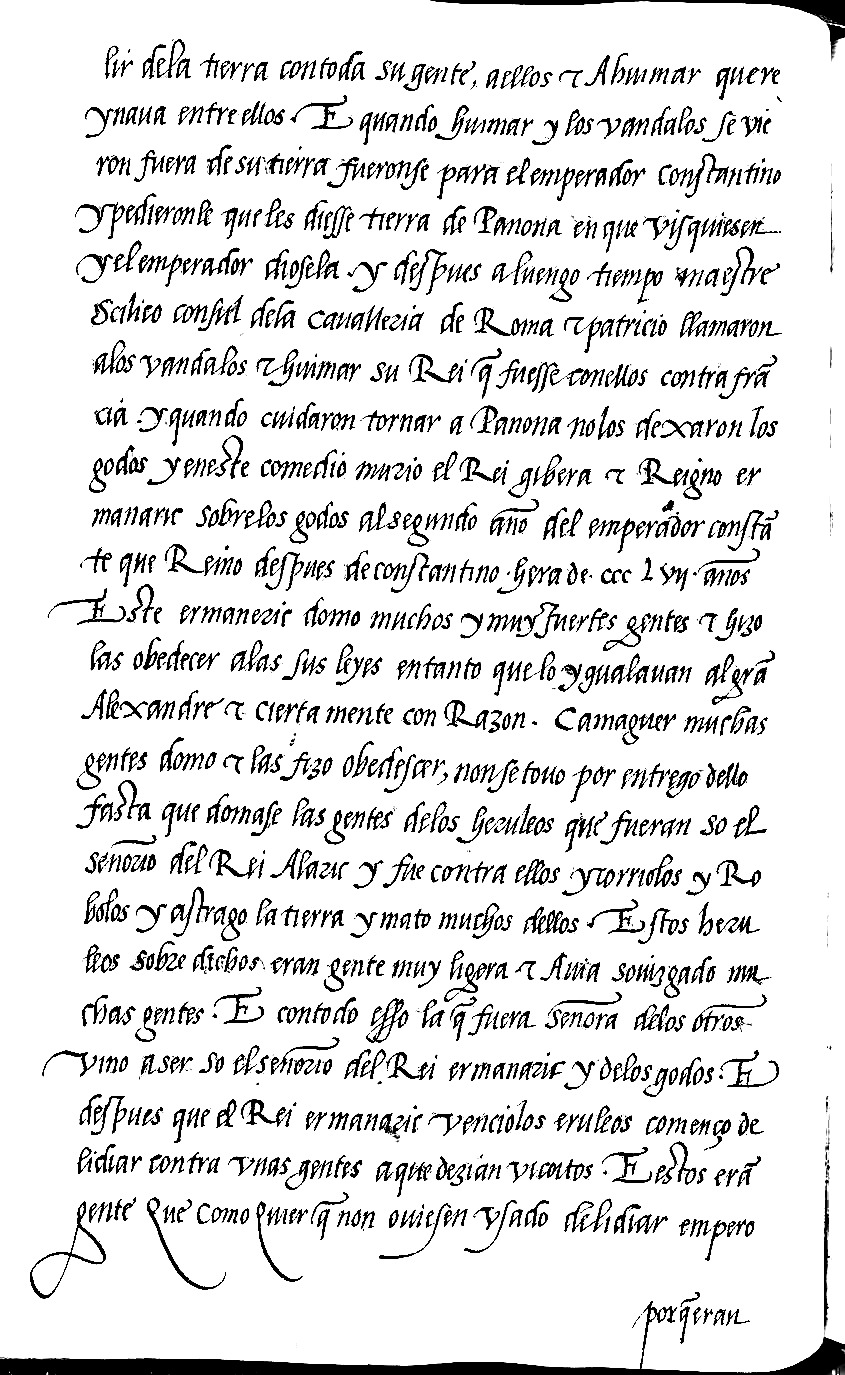 lir dela tierra contoda su gente, aellos ⁊ Ahuimar que re
ynaua entre ellos. E quando huimar y los vandalos se vie
ron fuera de su tierra fueronse para el emperador constantino
y pedieronle que les diesse tierra de Panona en que visquiesen
y el emperador diosela. y despues a luengo tiempo maestre
Scilico consul dela cavalleria de Roma ⁊ patricio llamaron
alos vandalos ⁊ huimar su Rei q̃ fuesse conellos contra frã
cia. y quando cuidaron tornar a Panona no los dexaron los
godos y eneste comedio murio el Rei gibera ⁊ Reigno er
manaric sobrelos godos al segundo año del emperador constã
te que Reino despues de constantino. hera de. ccc L vij. años
Este ermaneric domo muchos y muy fuertes gentes ⁊ hizo
las obedecer alas sus leyes entanto que lo ygualauan al grã
Alexandre ⁊ cierta mente con Razon. Camaguer muchas
gentes domo ⁊ las fizo obedescer, non se touo por entrego dello
fasta que domase las gentes delos heruleos que fueran so el
señorio del Rei Alaric y fue contra ellos y corriolos y Ro
bolos y astrago la tierra y mato muchos dellos. Estos heru
leos sobre dichos eran gente muy ligera ⁊ Auia soiuzgado mu
chas gentes. E contodo esso la q̃ fuera señora delos otros
vino a ser so el señorio del Rei ermanaric y delos godos. E
despues que el Rei ermanaric venciolos eruleos començo de
lidiar contra vnas gentes aque dezian vicoitos. E estos erã
gente que como quier q̃ non oviesen vsado de lidiar empero
porq̃ eran